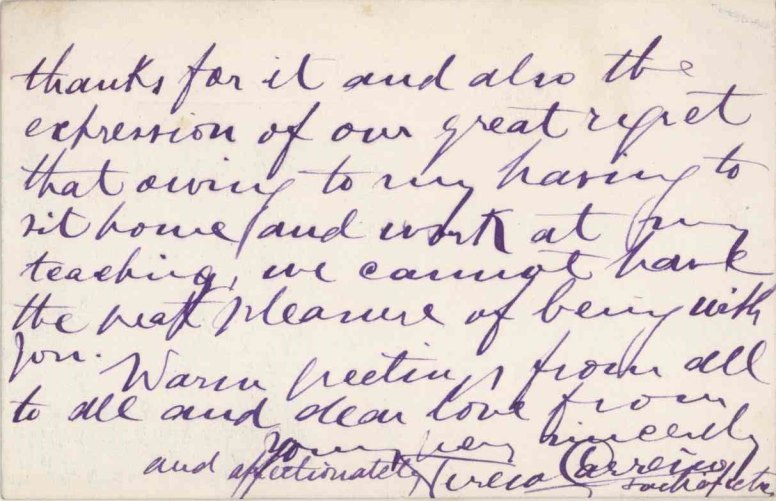 thanks for it and also the
expression of our great regret
that owing to my having to
sit home (and work at my
teaching, we cannot have
the great pleasure of being with
you.
Warm greetings from all
to all and dear love from
yours very sincerely
and affectionately Teresa Carreño